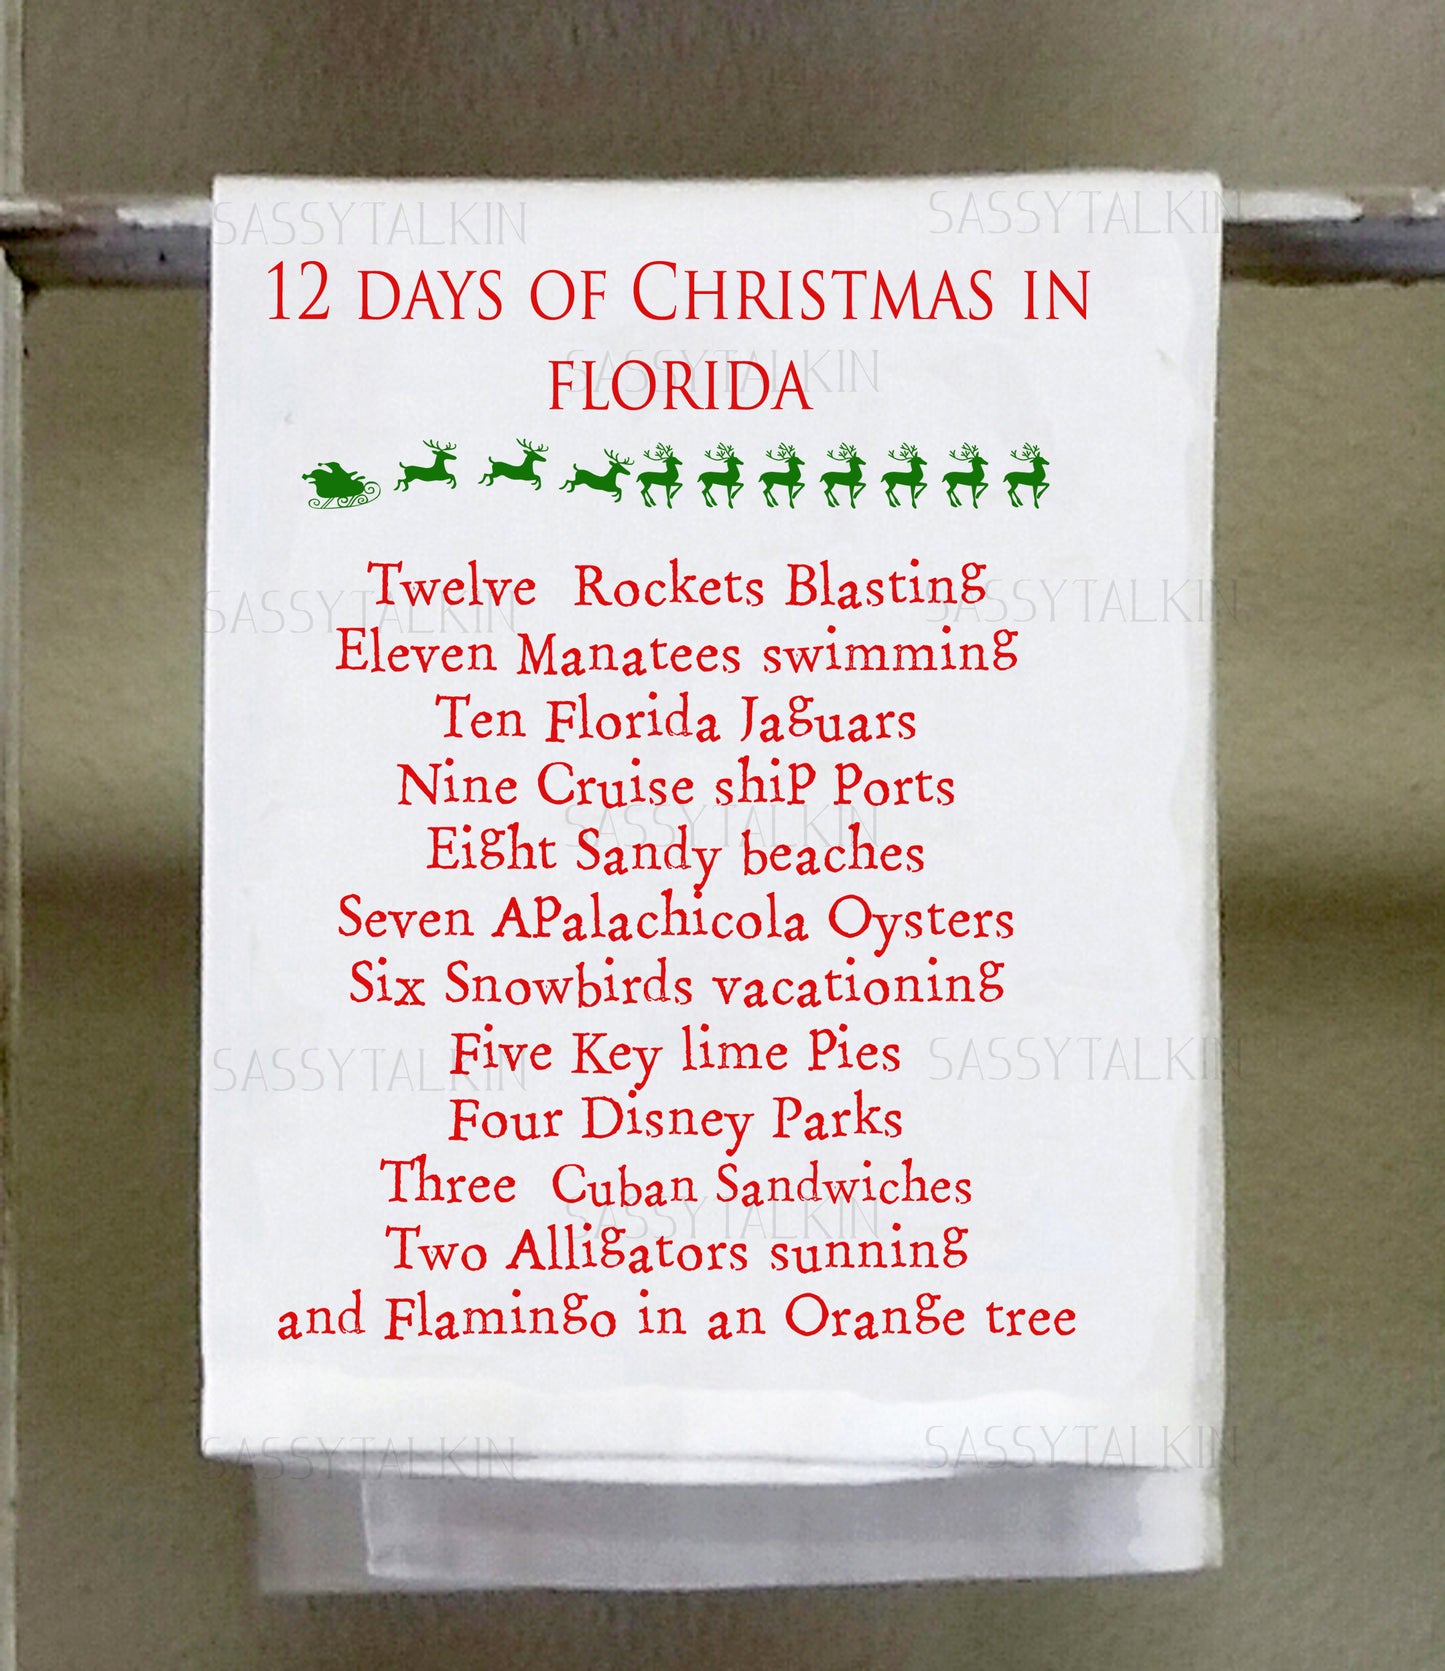 SASSYTALKIN SASSYTALKIN
12 DAYS OF CHRISTMAS IN
FLORIDA
SASSYTALKIN
Twelve Rockets Blasting
SASSYTALKIN SASSYTALKIN
Eleven Manatees swimming
Ten Florida Jaguars
Nine Cruise ship Ports
SASSYTALKIN
Eight Sandy beaches
Seven Apalachicola Oysters
Six Snowbirds vacationing
Five Key lime Pies
SASSYTALKIN SASSYTALKIN
Four Disney Parks
Three Cuban Sandwiches
SASSYTALKIN
Two Alligators sunning
and Flamingo in an Orange tree
SASSYTALKIN SASSYTALKIN